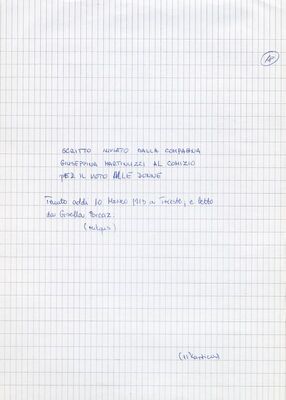 18
SCRITTO INVIATO DALLA COMPAGNA
GIUSEPPINA MARTINUZZI AL COMIZIO
PER IL VOTO ALLE DONNE
Tenuto addì 10 Marzo 1913 a Trieste, e letto
da Gisella